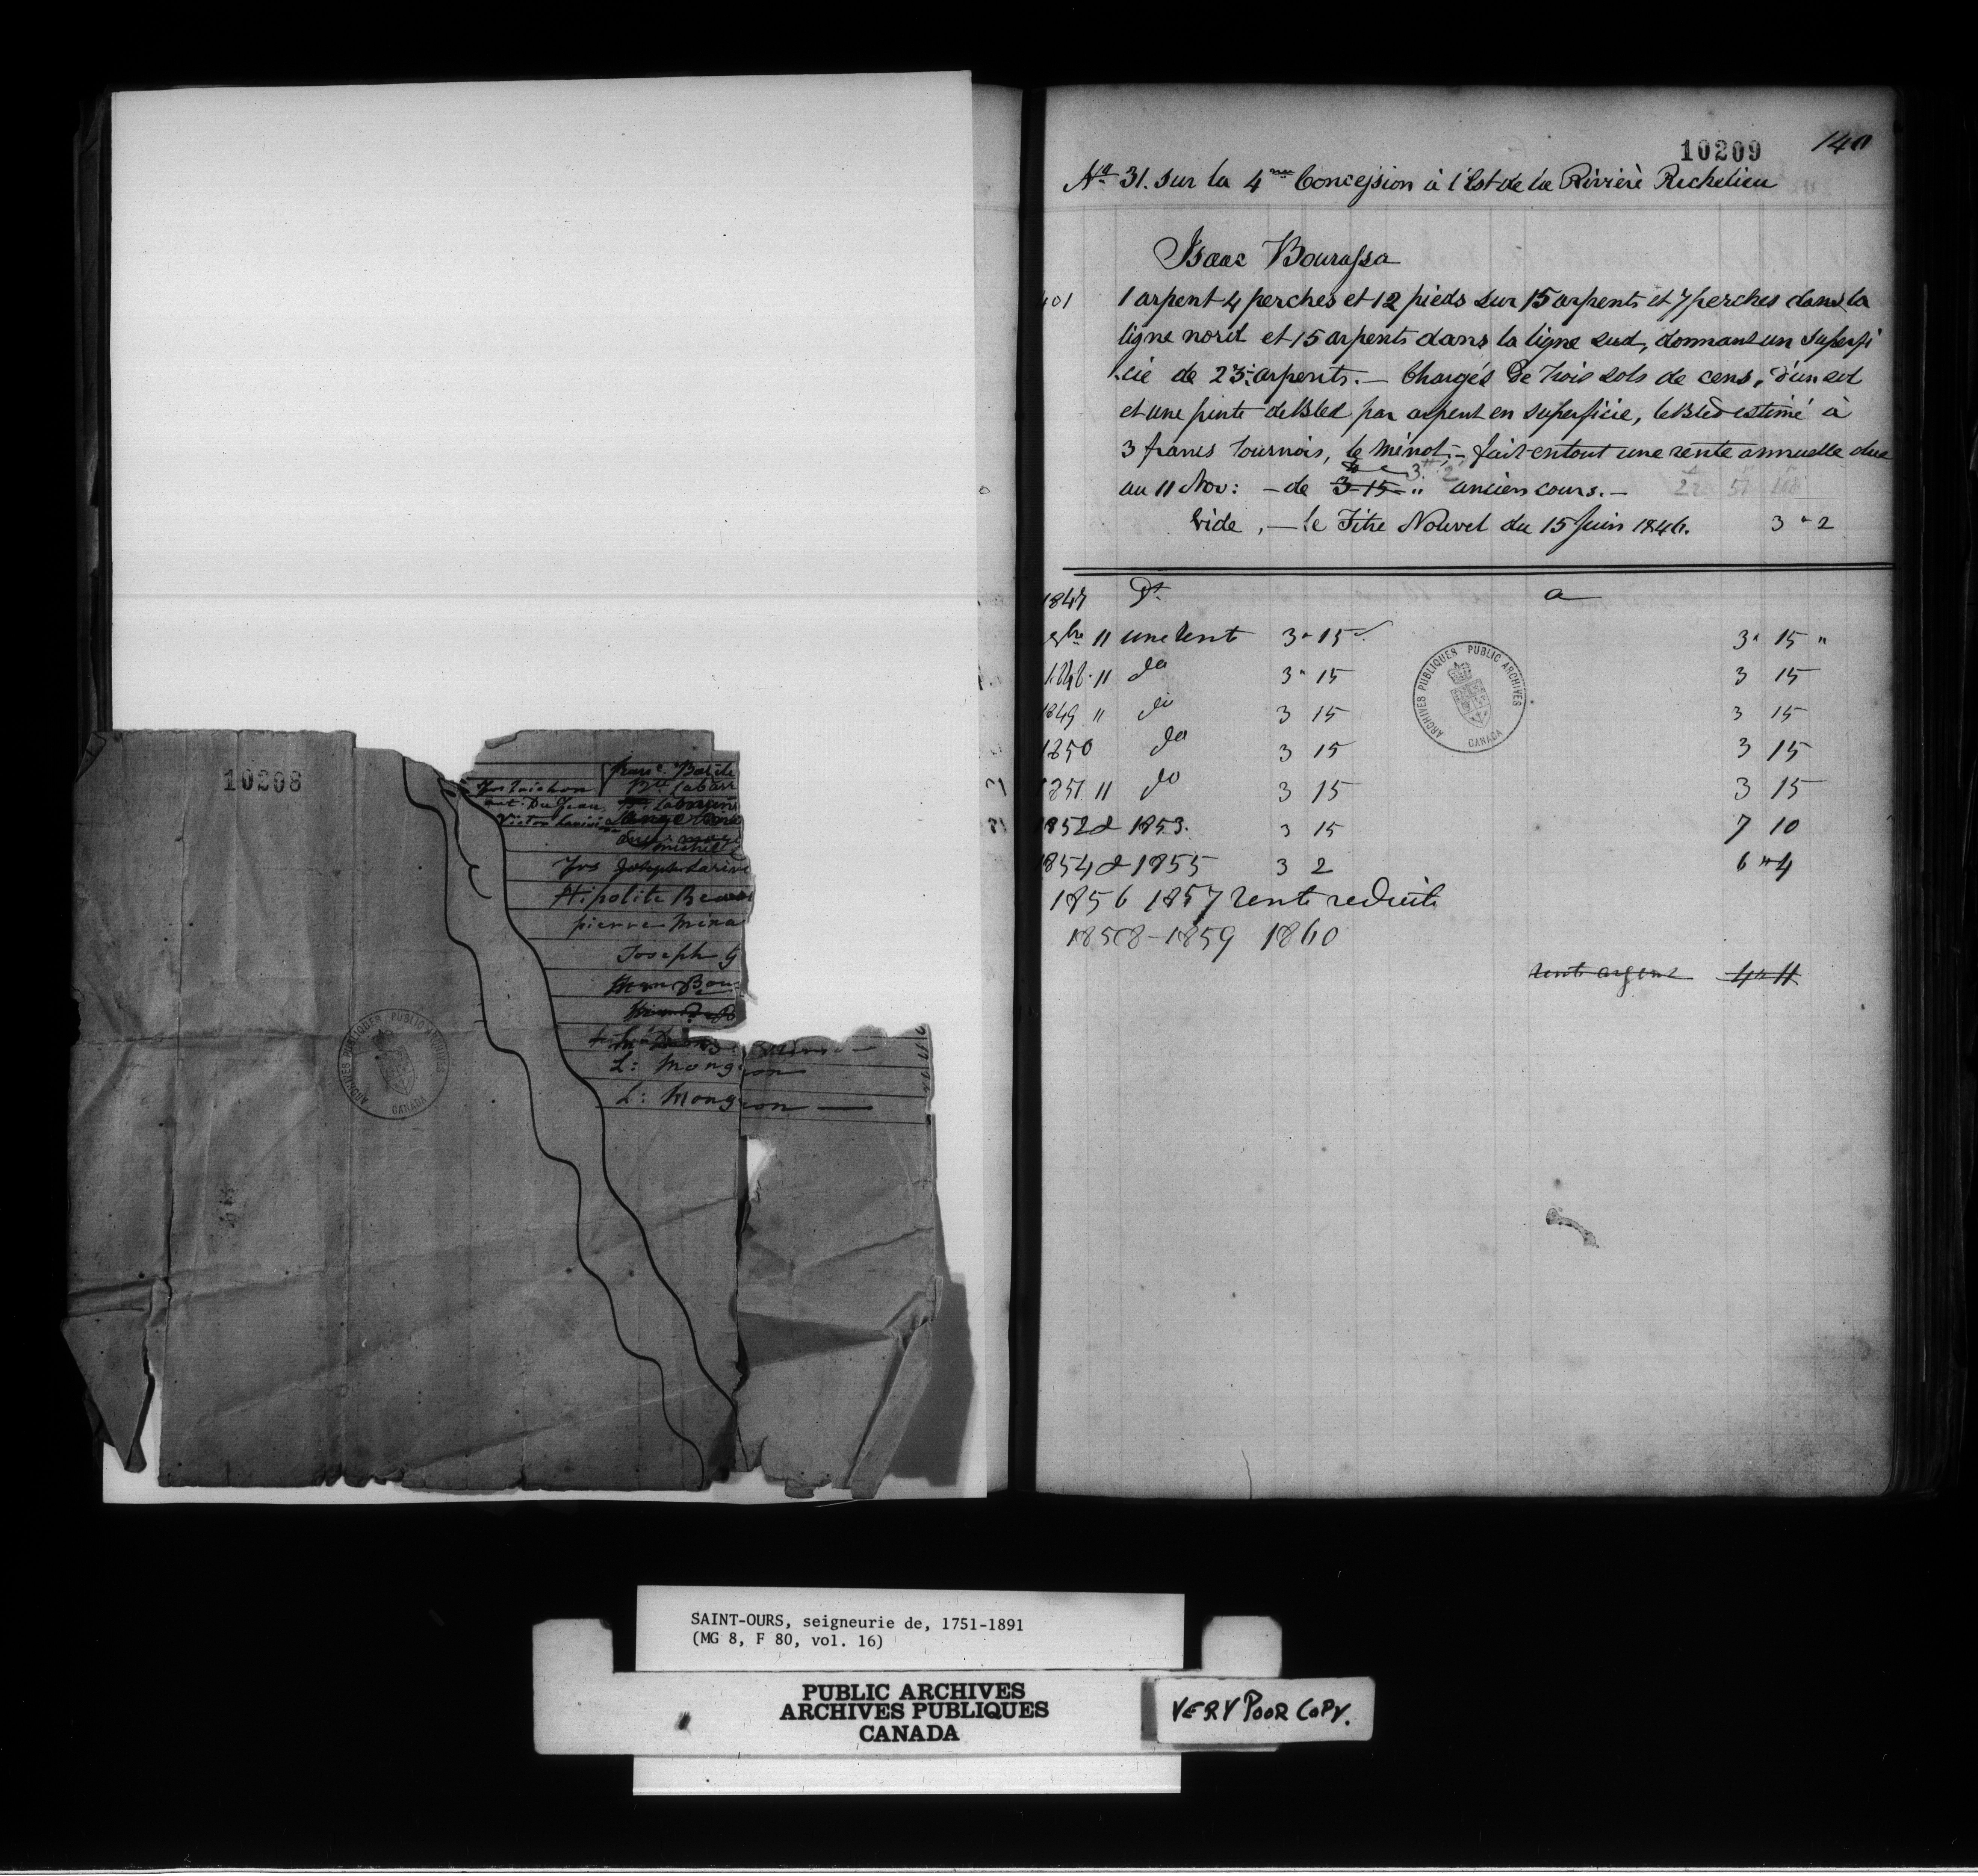 10208
Bte Labarr
ant: Dujeau
Victor
michel
Jos Joseph Lariv
Hipolite Beau
pierre Mina
Joseph G
Bou
L: Mongeon
L: Mongeon
ARCHIVES PUBLIQUES PUBLIC ARCHIVES
CANADA
10209 140
No 31. Sur la 4me Concession à l'Est de la Rivière Richelieu
Isaac Bourassa
401 1 arpent 4 perches et 12 pieds sur 15 arpents et 7 perches dans la
ligne nord et 15 arpents dans la ligne sud, donnant un superfi
cie de 23: arpents. — Chargés de trois sols de cens, d'un sol
et une pinte de Bled par arpent en superficie, le Bled estimé à
3 francs tournois, le minot; — fait en tout une rente annuelle due
3 " 2
au 11 Nov: — de 3-15 " ancien cours. —
Vide, — le Titre Nouvel du 15 Juin 1846. 3 " 2
1847 Dt a
9bre 11 une rent 3 " 15 3 " 15 "
1848 11 do 3 " 15 3 15
1849 " do 3 15 3 15
1850 do 3 15 3 15
1851 11 do 3 15 3 15
1852 & 1853. 3 15 7 10
1854 & 1855 3 2 6 " 4
1856 1857 rente reduite
1858-1859 1860
rente argent 4 " 11
ARCHIVES PUBLIQUES PUBLIC ARCHIVES
CANADA
SAINT-OURS, seigneurie de, 1751-1891
(MG 8, F 80, vol. 16)
PUBLIC ARCHIVES
ARCHIVES PUBLIQUES
CANADA
VERY POOR COPY.